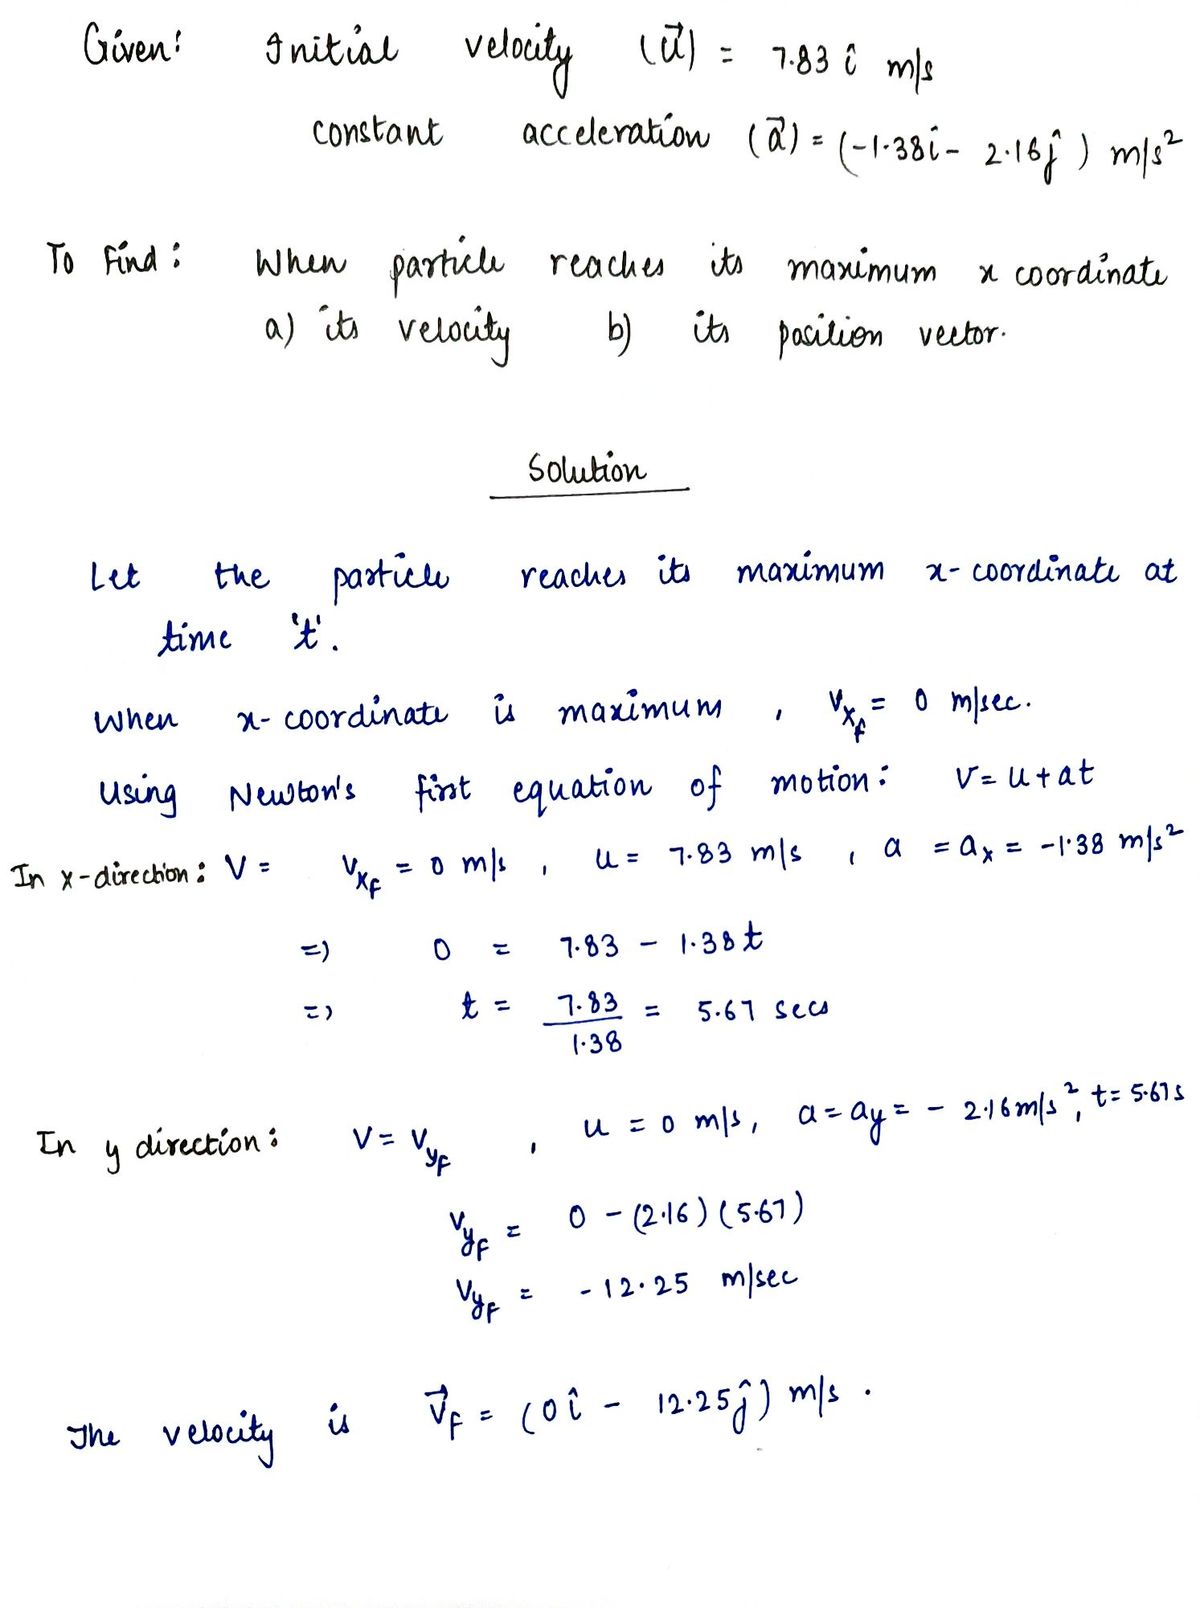 Given: Initial velocity (u⃗) = 7.83 î m/s
constant acceleration (a⃗) = (-1.38î - 2.16ĵ) m/s²
To Find: When particle reaches its maximum x coordinate
a) its velocity b) its position vector.
Solution
Let the particle reaches its maximum x-coordinate at
time 't'.
When x-coordinate is maximum, Vxf = 0 m/sec.
Using Newton's first equation of motion: V = u + at
In x-direction: V = Vxf = 0 m/s, u = 7.83 m/s, a = ax = -1.38 m/s²
=) 0 = 7.83 - 1.38t
=) t = 7.83/1.38 = 5.67 secs
In y direction: V = Vyf, u = 0 m/s, a = ay = - 2.16 m/s², t = 5.67s
Vyf = 0 - (2.16)(5.67)
Vyf = -12.25 m/sec
The velocity is V⃗f = (0î - 12.25ĵ) m/s.